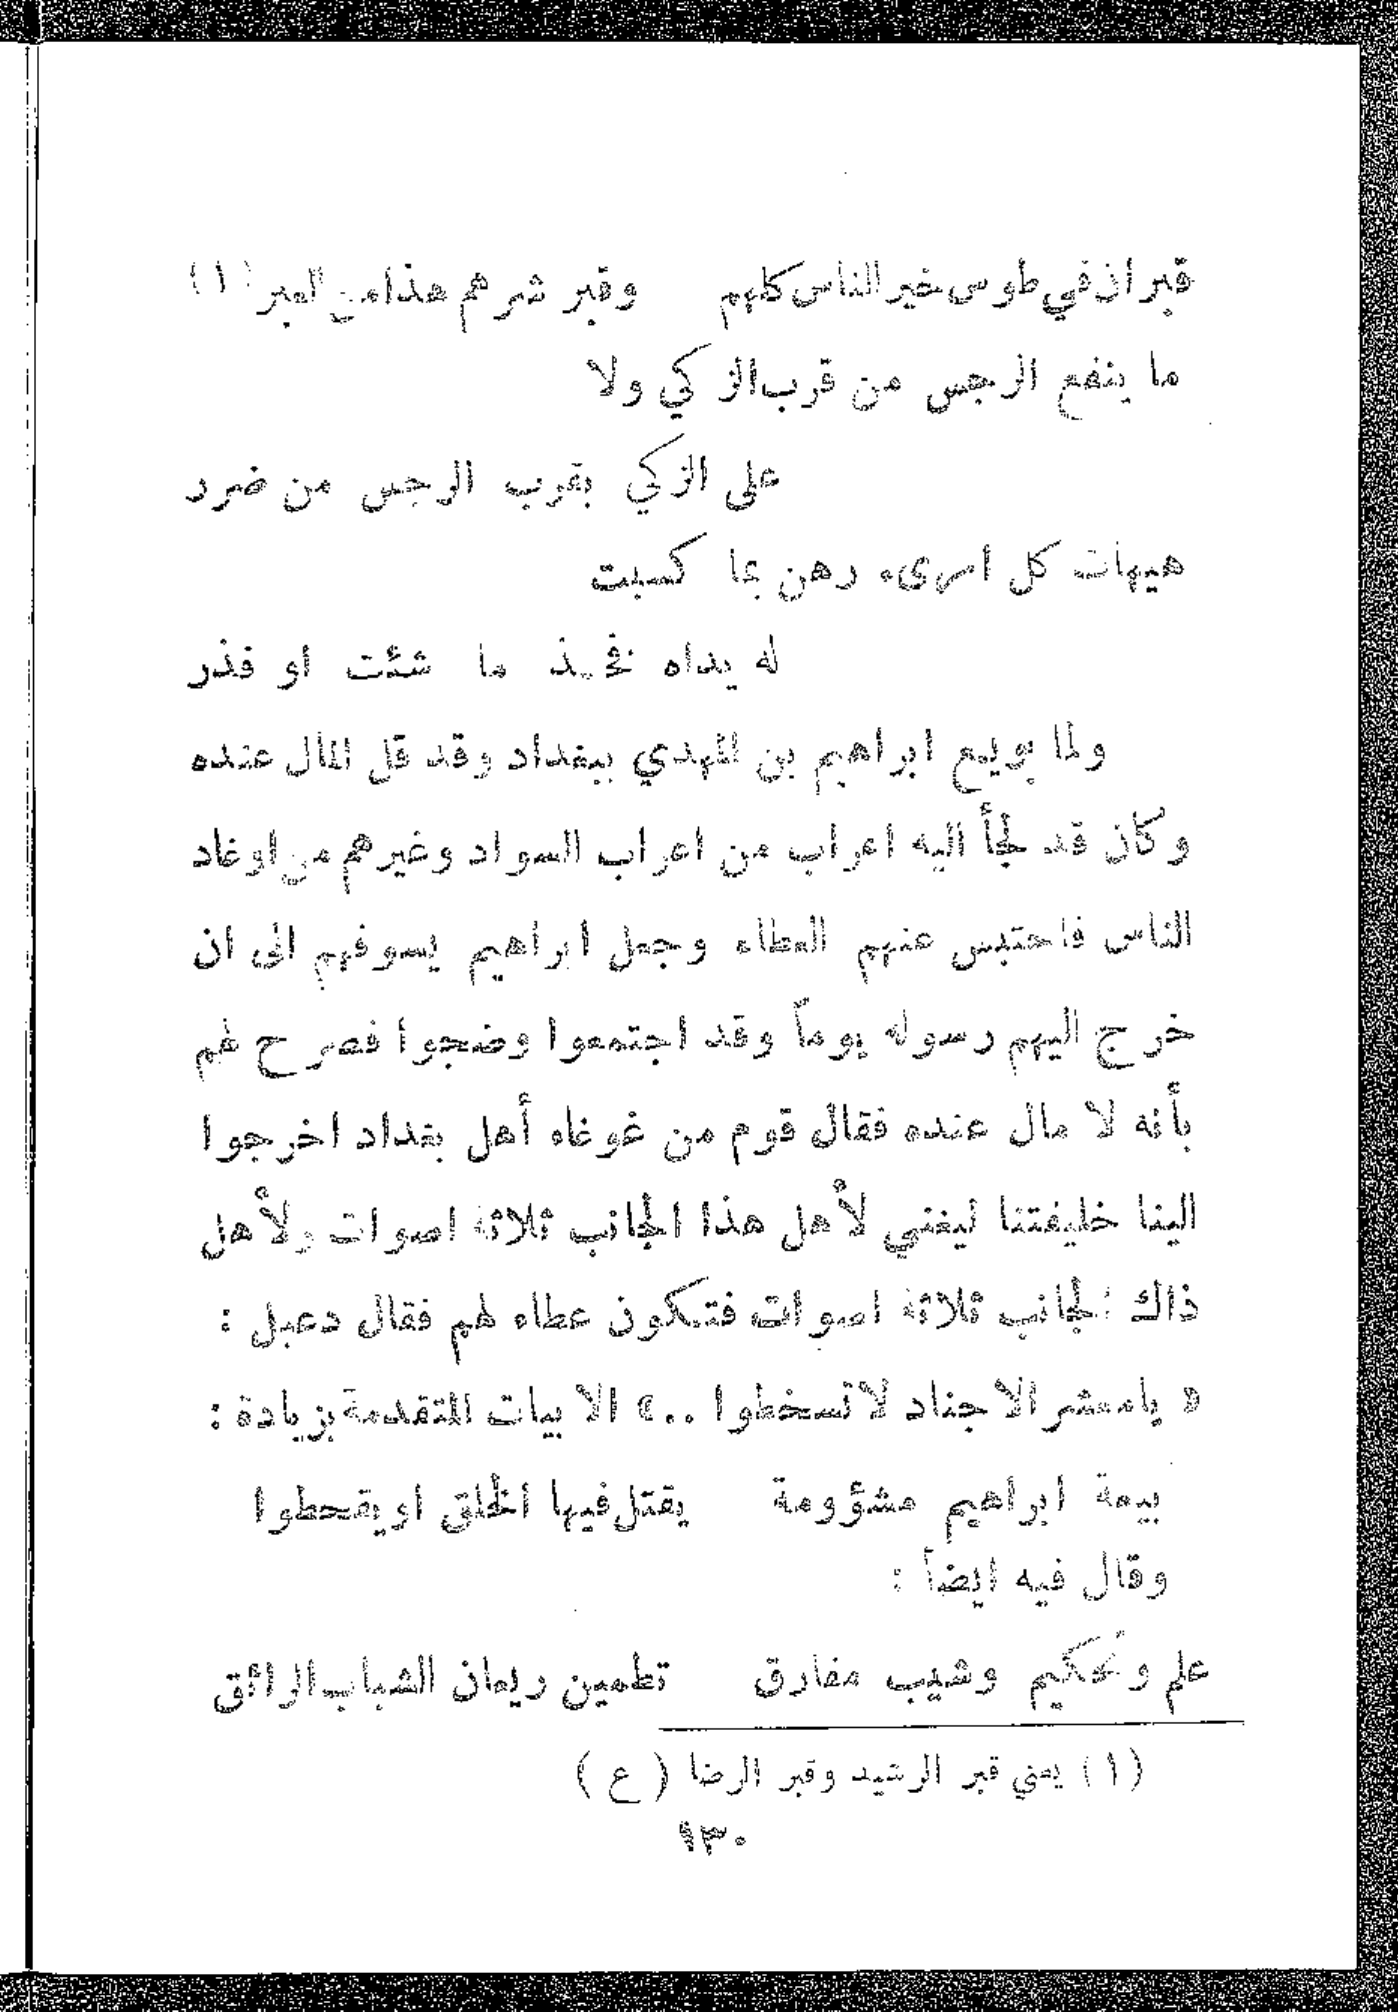 قبران في طوس خير الناس كلهم وقبر شرهم هذا من العبر (١)
ما ينفع الرجس من قرب الزكي ولا
على الزكي بقرب الرجس من ضرر
هيهات كل امرىء رهن بما كسبت
له يداه فخذ ما شئت او فذر
ولما بويع ابراهيم بن المهدي ببغداد وقد قل المال عنده
وكان قد لجأ اليه اعراب من اعراب السواد وغيرهم من اوغاد
الناس فاحتبس عنهم العطاء وجعل ابراهيم يسوفهم الى ان
خرج اليهم رسوله يوماً وقد اجتمعوا وضجوا فصرح لهم
بأنه لا مال عنده فقال قوم من غوغاء أهل بغداد اخرجوا
الينا خليفتنا ليغني لأهل هذا الجانب ثلاثة اصوات ولأهل
ذاك الجانب ثلاثة اصوات فتكون عطاء لهم فقال دعبل :
« يا معشر الاجناد لا تسخطوا ..» الابيات المتقدمة بزيادة :
بيعة ابراهيم مشؤومة يقتل فيها الخلق او يقحطوا
وقال فيه ايضاً :
علم وتحكيم وشيب مفارق تطمين ريعان الشباب الرائق
(١) يعني قبر الرشيد وقبر الرضا (ع)
١٣٠